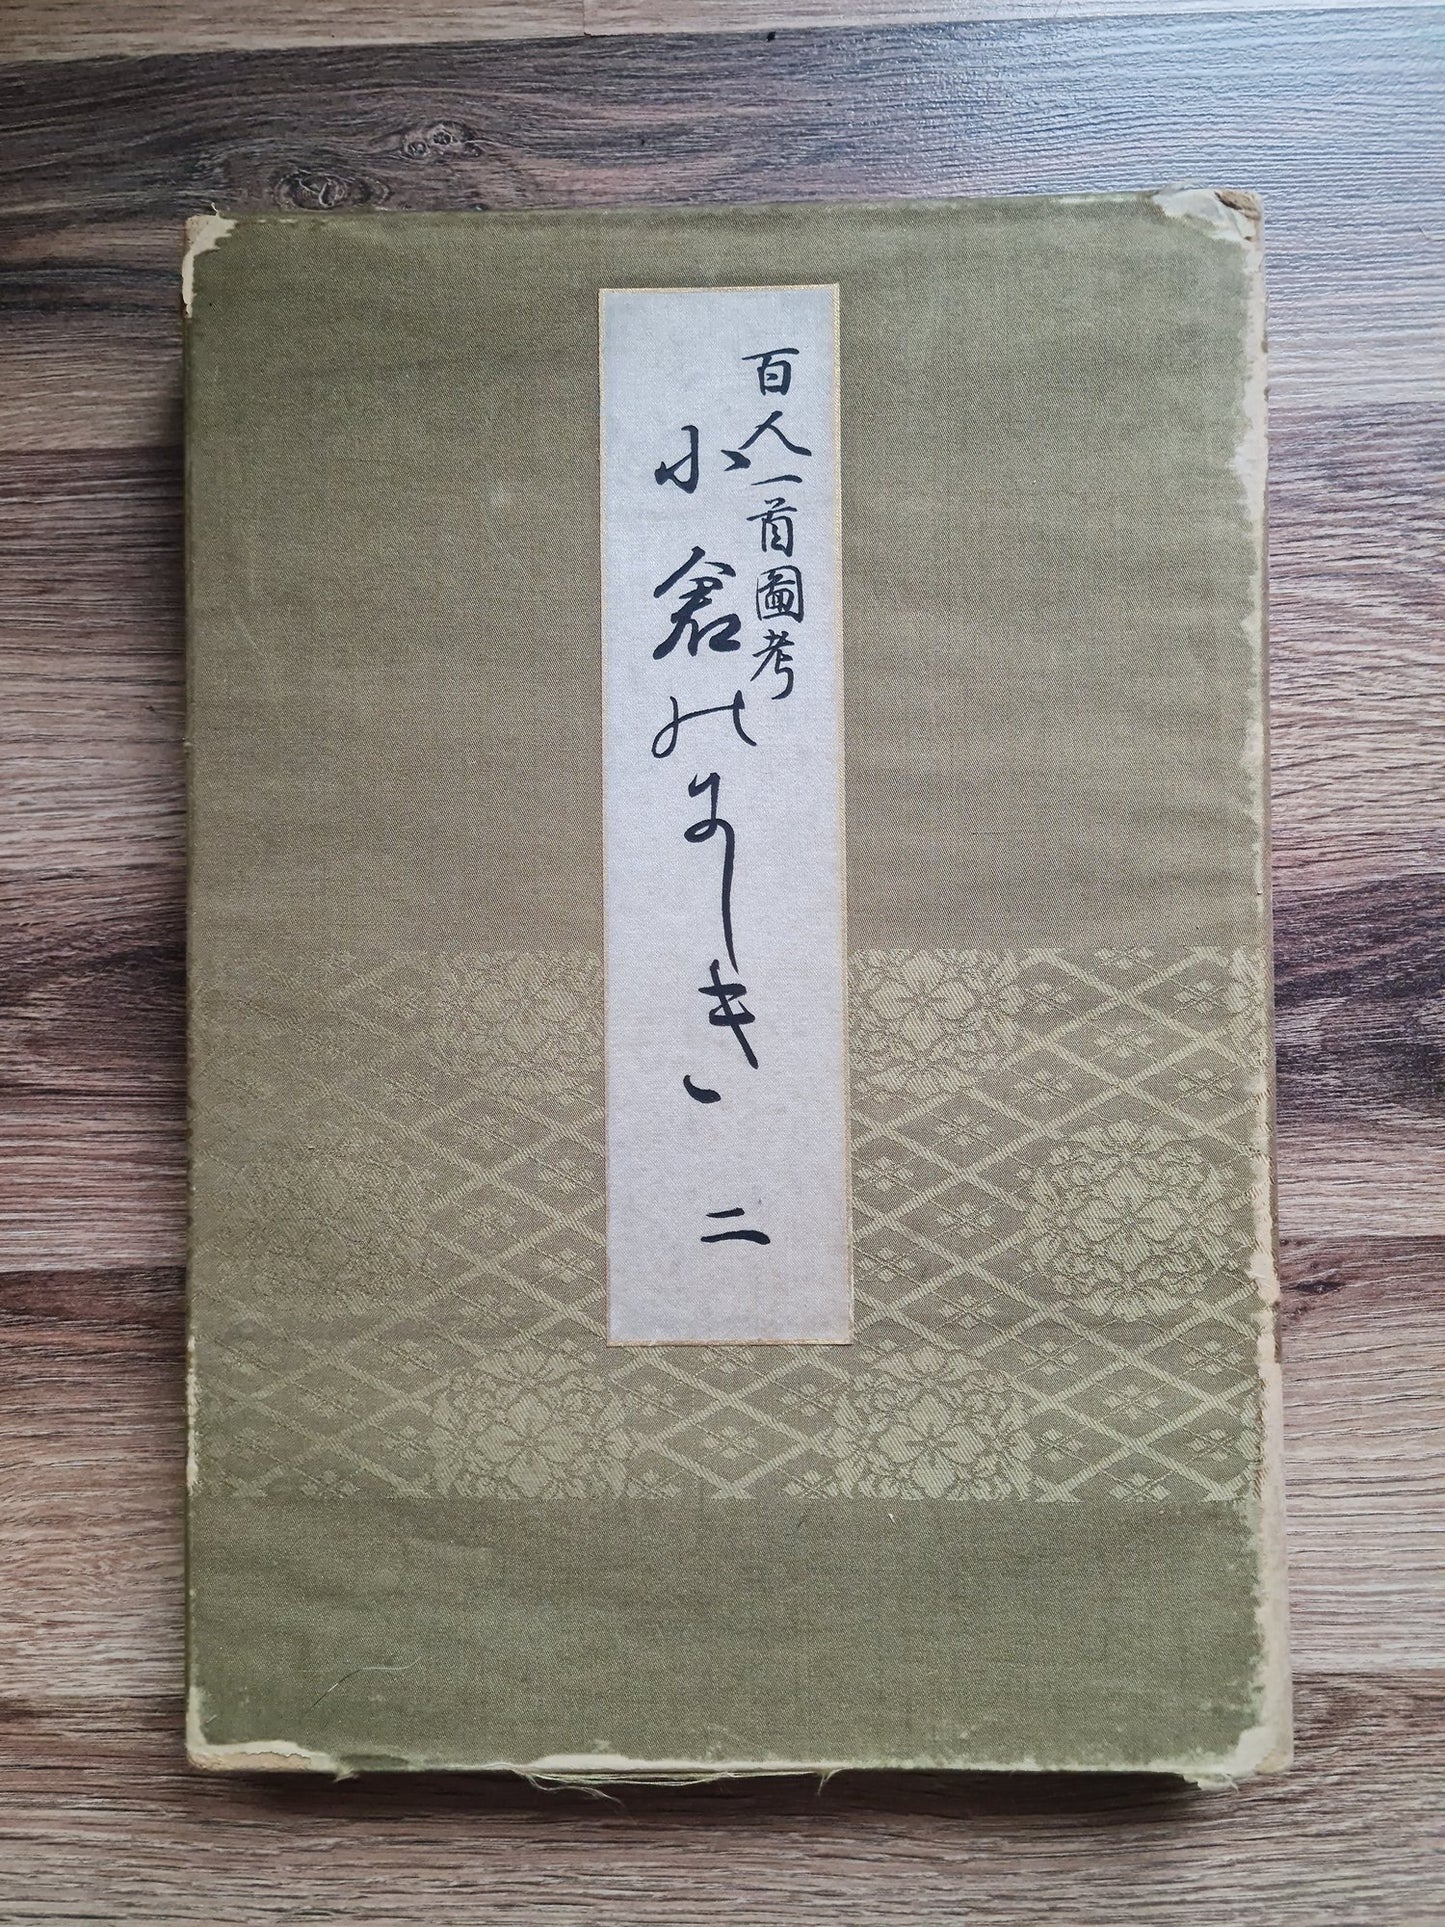 百人一首圖考
小倉のにしき
二